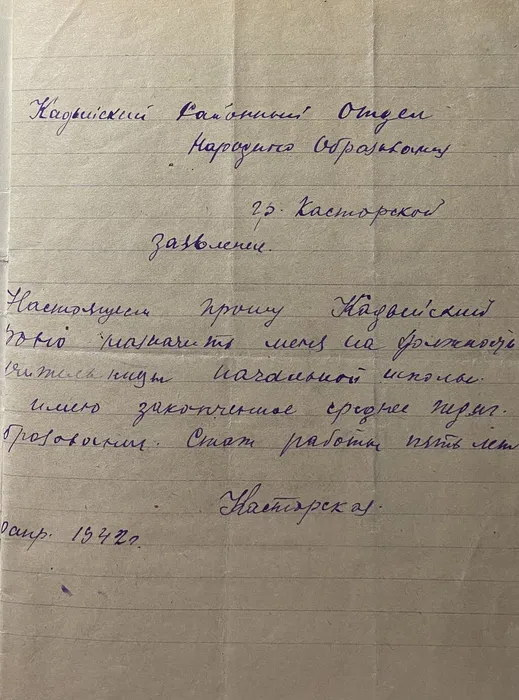 Кадыйский Районный Отдел
Народного Образования
гр. Касторской
заявление.
Настоящем прошу Кадыйский
РОНО назначить меня на должность
учительницы начальной школы.
имею законченное среднее педаг.
образование. Стаж работы пять лет
Касторская.
апр. 1942 г.